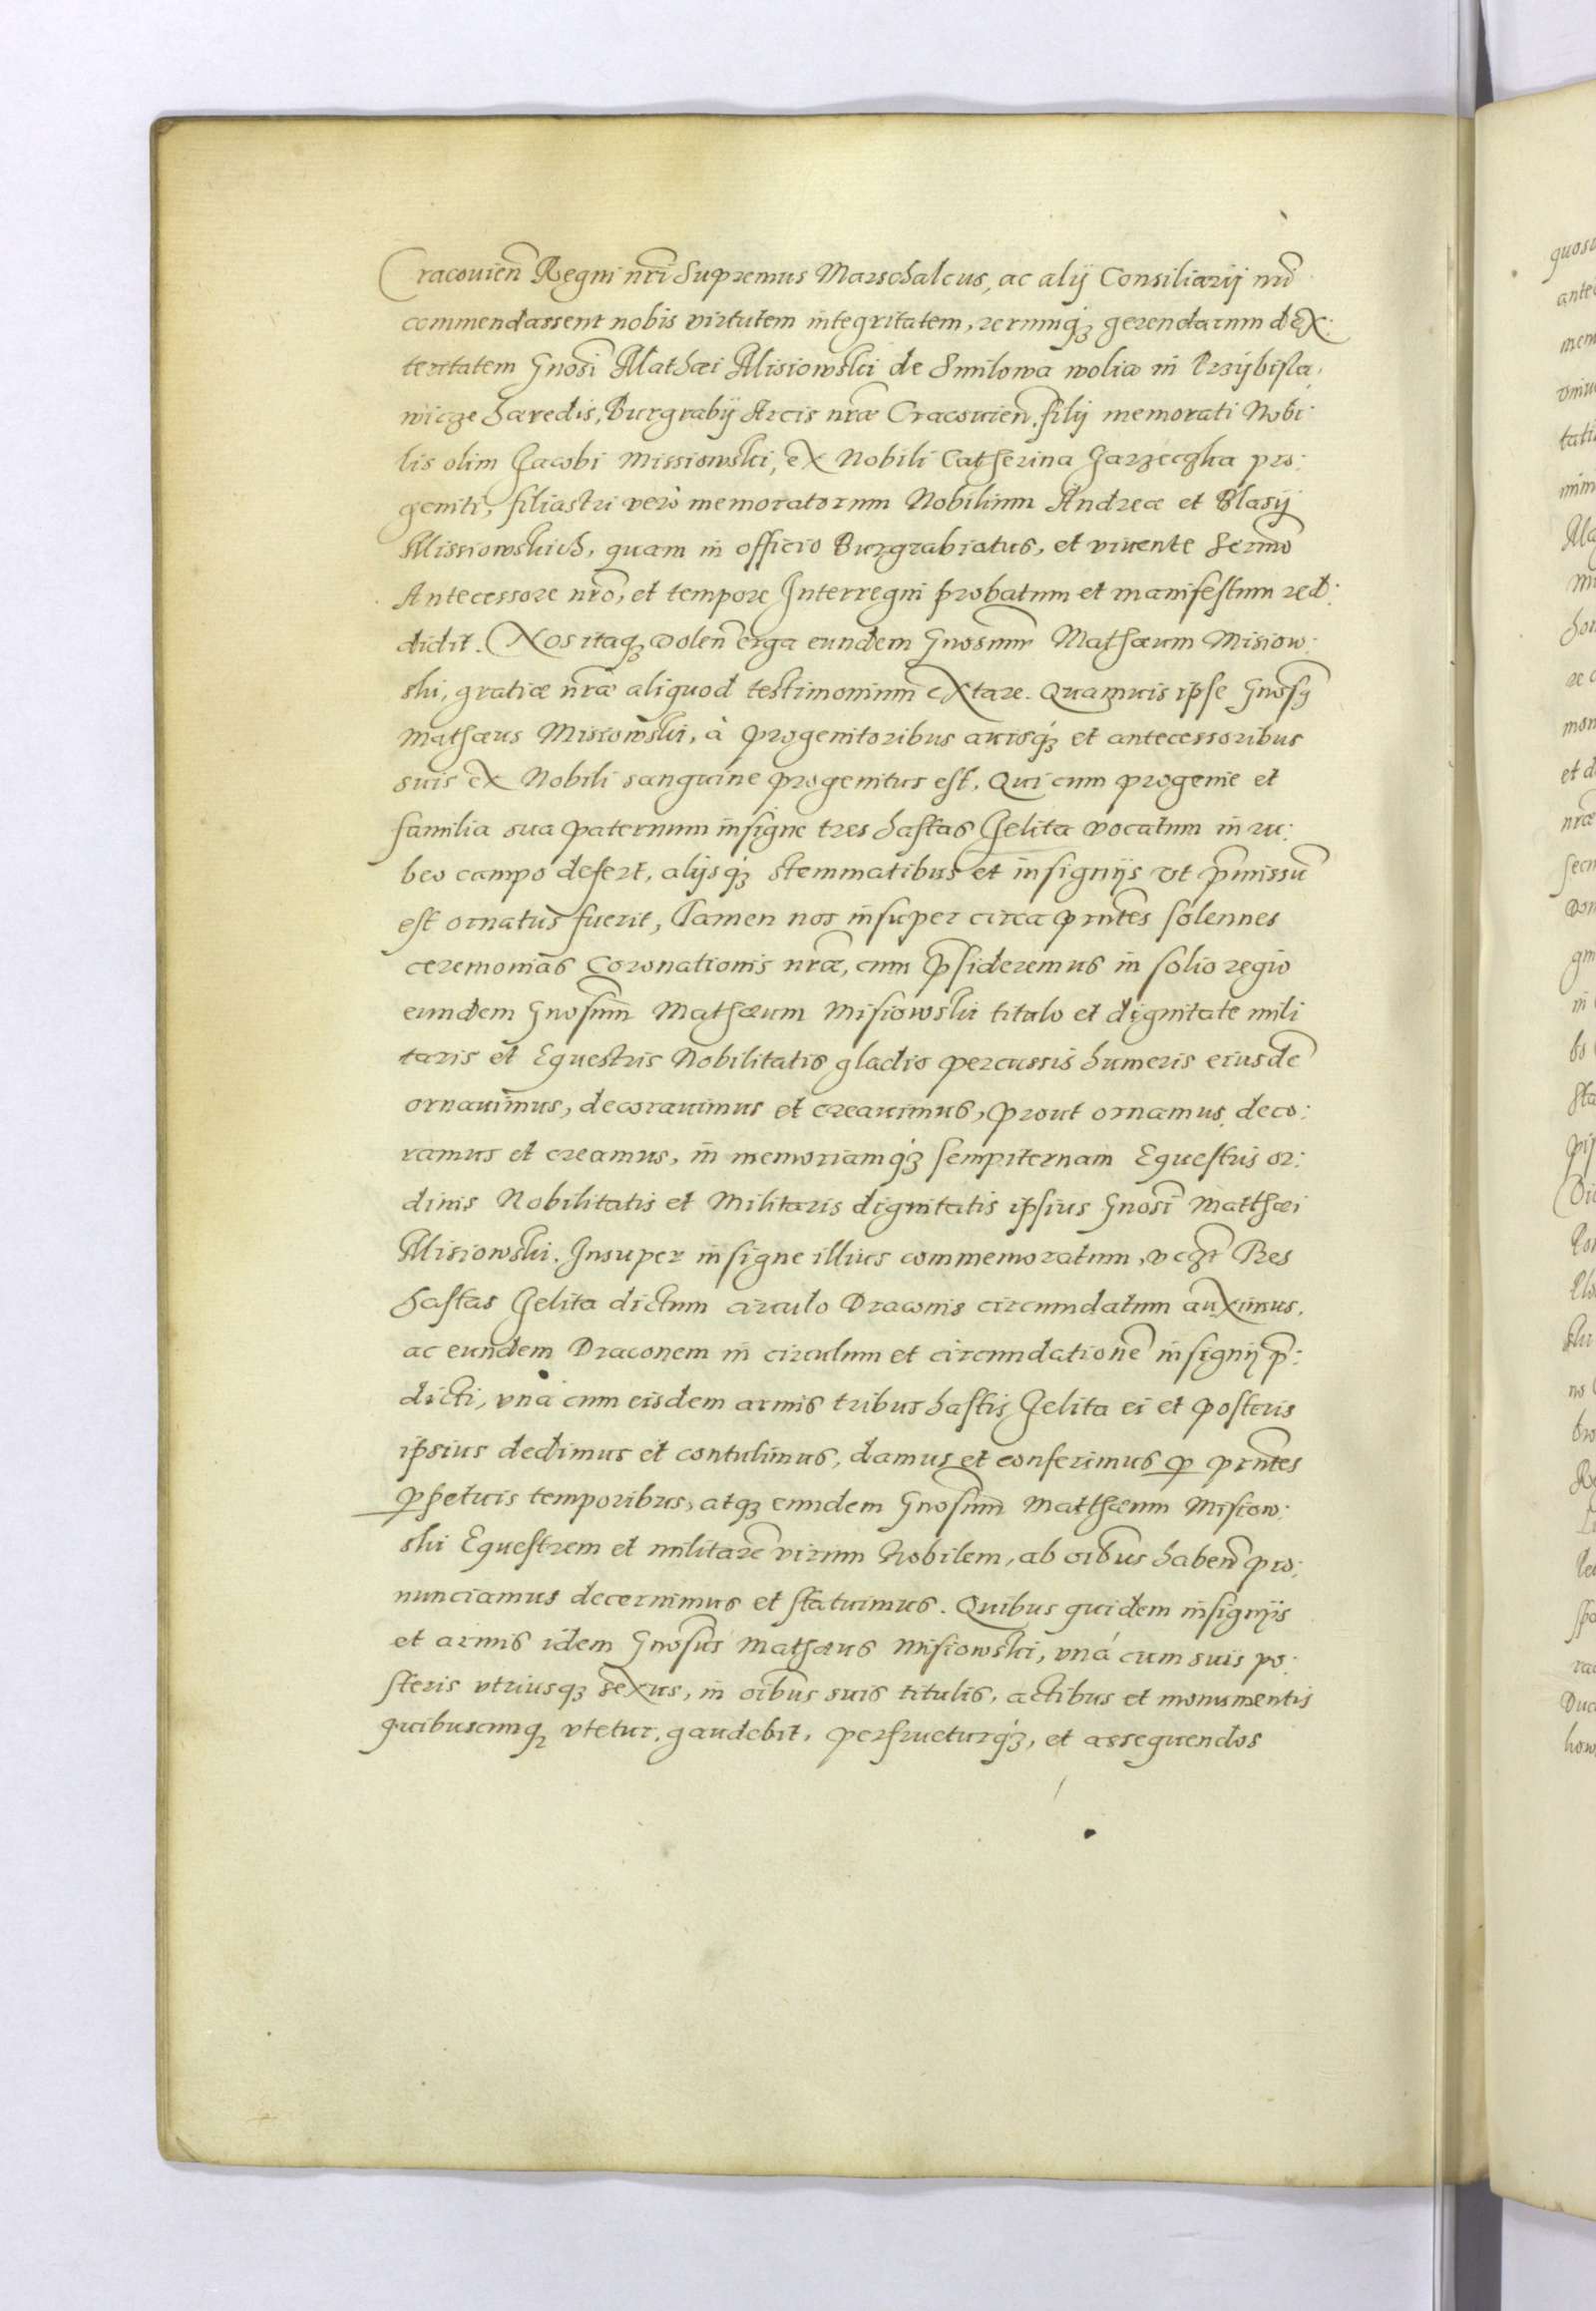 Cracouień Regni nr̃i Supremus Marschalcus, ac alij Consiliarij nr̃i
commendassent nobis virtutem integritatem, rerumq́ʒ gerendarum dex:
teritatem Gnosi Mathæi Misiowski de Smilowa wolia in Przijbisla,
wicze hæredis, Burgrabij Arcis nræ Cracouień. filij memorati Nobi:
lis olim Jacobi Missiowski, ex Nobili Catherina Jarzeczka pro:
geniti, filiastri verò memoratorum Nobilium Andreæ et Blasij
Missiowskich, quam in officio Burgrabiatus, et viuente Sermo
Antecessore nr̃o, et tempore Interregni probatum et manifestum red:
didit. Nos itaqʒ volen̄ erga eundem Gnosum̄ Mathæum Misiow:
ski, gratiæ nr̃æ aliquod testimonium extare. Quamuis ipse Gnosꝰ
Mathæus Misiowski, à progenitoribus auisq́ʒ et antecessoribus
suis ex Nobili sanguine progenitus est. Qui cum progenie et
familia sua paternum insigne tres hastas Jelita vocatum in ru:
beo campo defert, alijsq́ʒ stemmatibus et insignijs vt p̄missū
est ornatus fuerit, Tamen nos insuper circa pr̃ntes solennes
ceremonias Coronationis nræ, cum p̄sideremus in solio regio
eundem Gnosum̄ Mathæum Misiowski titulo et dignitate mili
taris et Equestris Nobilitatis gladio percussis humeris eiusdē
ornauimus, decorauimus et creauimus, prout ornamus, deco:
ramus et creamus, in memoriamq́ʒ sempiternam Equestris or:
dinis Nobilitatis et Militaris dignitatis ipsius Gnosi Matthæi
Misiowski. Insuper insigne illius commemoratum, vczt Tres
hastas Jelita dictum circulo Draconis circumdatum auximus,
ac eundem Draconem in circulum et circumdationē insignij p̄:
dicti, vnà cum eisdem armis tribus hastis Jelita ei et posteris
ipsius dedimus et contulimus, damus et conferimus ꝑ pr̃ntes
ꝑpetuis temporibus, atqʒ eundem Gnosum̄ Matthæum Misiow:
ski Equestrem et militarē virum Nobilem, ab oībus haben̄ pro:
nunciamus decernimus et statuimus. Quibus quidem insignijs
et armis idem Gnosus Mathæus Misiowski, vná cum suis po:
steris vtriusqʒ sexus, in oībus suis titulis, actibus et monumentis
quibuscumqʒ vtetur, gaudebit, perfrueturq́ʒ, et assequendos